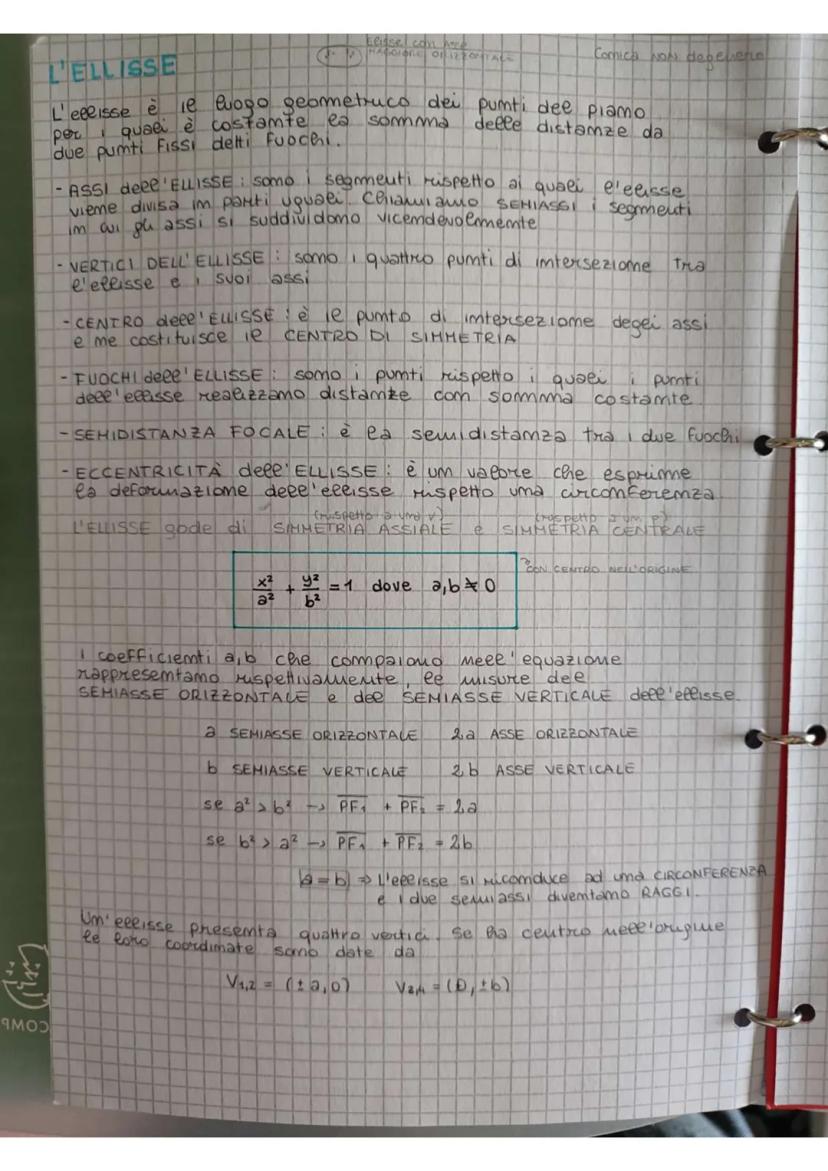 Ellisse con asse
MAGGIORE ORIZZONTALE
Conica NON degenere
L'ELLISSE
L'ellisse è il luogo geometrico dei punti del piano
per i quali è costante la somma delle distanze da
due punti fissi detti fuochi.
- ASSI dell'ELLISSE: sono i segmenti rispetto ai quali l'ellisse
viene divisa in parti uguali. Chiamiamo SEMIASSI i segmenti
in cui gli assi si suddividono vicendevolmente
- VERTICI DELL'ELLISSE: sono i quattro punti di intersezione tra
l'ellisse e i suoi assi
- CENTRO dell'ELLISSE: è il punto di intersezione degli assi
e ne costituisce il CENTRO DI SIMMETRIA
- FUOCHI dell'ELLISSE: sono i punti rispetto i quali i punti
dell'ellisse realizzano distanze con somma costante.
- SEMIDISTANZA FOCALE: è la semidistanza tra i due fuochi
- ECCENTRICITÀ dell'ELLISSE: è un valore che esprime
la deformazione dell'ellisse rispetto una circonferenza
(rispetto a una r) (rispetto a un P)
L'ELLISSE gode di SIMMETRIA ASSIALE e SIMMETRIA CENTRALE
CON CENTRO NELL'ORIGINE
x²/a² + y²/b² = 1 dove a,b ≠ 0
I coefficienti a,b che compaiono nell'equazione
rappresentano rispettivamente, le misure del
SEMIASSE ORIZZONTALE e del SEMIASSE VERTICALE dell'ellisse.
a SEMIASSE ORIZZONTALE 2a ASSE ORIZZONTALE
b SEMIASSE VERTICALE 2b ASSE VERTICALE
se a² > b² → PF₁ + PF₂ = 2a
se b² > a² → PF₁ + PF₂ = 2b
|a = b| ⇒ L'ellisse si riconduce ad una CIRCONFERENZA
e i due semiassi diventano RAGGI.
Un'ellisse presenta quattro vertici. Se ha centro nell'origine
le loro coordinate sono date da
V₁,₂ = (± a, 0) V₃,₄ = (0, ± b)
COMP